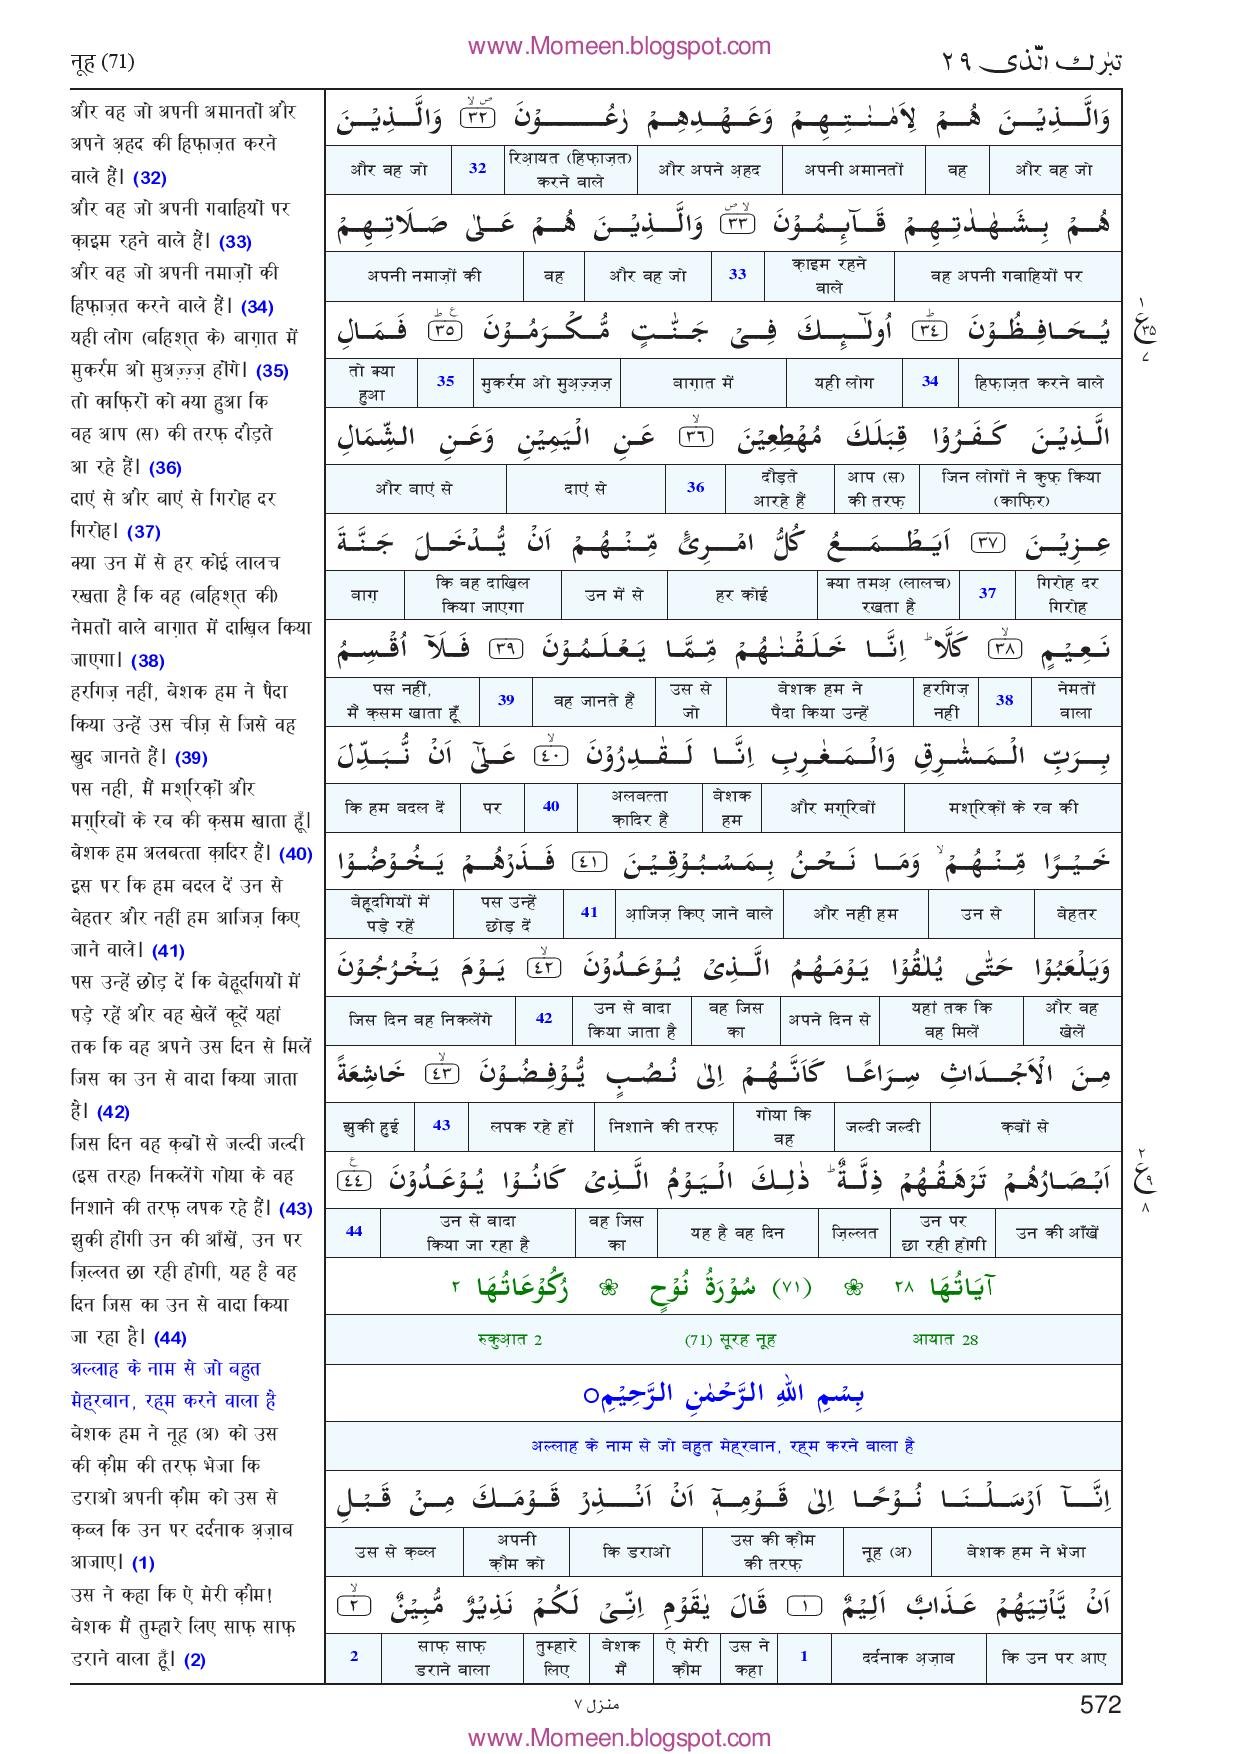 www.Momeen.blogspot.com
नूह (71)
تبٰرك الّذى ٢٩
और वह जो अपनी अमानतों और
अपने अ़हद की हिफ़ाज़त करने
वाले हैं। (32)
और वह जो अपनी गवाहियों पर
क़ाइम रहने वाले हैं। (33)
और वह जो अपनी नमाज़ों की
हिफ़ाज़त करने वाले हैं। (34)
यही लोग (बहिश्त के) बाग़ात में
मुकर्रम ओ मुअ़ज़्ज़ज़ होंगे। (35)
तो काफ़िरों को क्या हुआ कि
वह आप (स) की तरफ़ दौड़ते
आ रहे हैं। (36)
दाएं से और बाएं से गिरोह दर
गिरोह। (37)
क्या उन में से हर कोई लालच
रखता है कि वह (बहिश्त की)
नेमतों वाले बाग़ात में दाख़िल किया
जाएगा। (38)
हरगिज़ नहीं, बेशक हम ने पैदा
किया उन्हें उस चीज़ से जिसे वह
खुद जानते हैं। (39)
पस नही, मैं मश्रिक़ों और
मग़्रिबों के रब की क़सम खाता हूँ।
बेशक हम अलबत्ता क़ादिर हैं। (40)
इस पर कि हम बदल दें उन से
बेहतर और नहीं हम आजिज़ किए
जाने वाले। (41)
पस उन्हें छोड़ दें कि बेहूदगियों में
पड़े रहें और वह खेलें कूदें यहां
तक कि वह अपने उस दिन से मिलें
जिस का उन से वादा किया जाता
है। (42)
जिस दिन वह क़ब्रों से जल्दी जल्दी
(इस तरह) निकलेंगे गोया के वह
निशाने की तरफ़ लपक रहे हैं। (43)
झुकी होंगी उन की आँखें, उन पर
ज़िल्लत छा रही होगी, यह है वह
दिन जिस का उन से वादा किया
जा रहा है। (44)
अल्लाह के नाम से जो बहुत
मेह्रबान, रह्म करने वाला है
बेशक हम ने नूह (अ) को उस
की क़ौम की तरफ़ भेजा कि
डराओ अपनी क़ौम को उस से
क़ब्ल कि उन पर दर्दनाक अ़ज़ाब
आजाए। (1)
उस ने कहा कि ऐ मेरी क़ौम!
बेशक मैं तुम्हारे लिए साफ़ साफ़
डराने वाला हूँ। (2)
وَالَّذِيْنَ هُمْ لِاَمٰنٰتِهِمْ وَعَهْدِهِمْ رٰعُوْنَ ٣٢ وَالَّذِيْنَ
और वह जो वह अपनी अमानतों और अपने अ़हद रिआ़यत (हिफ़ाज़त) करने वाले 32 और वह जो
هُمْ بِشَهٰدٰتِهِمْ قَآىِٕمُوْنَ ٣٣ وَالَّذِيْنَ هُمْ عَلٰى صَلَاتِهِمْ
वह अपनी गवाहियों पर क़ाइम रहने वाले 33 और वह जो वह अपनी नमाज़ों की
يُحَافِظُوْنَ ٣٤ اُولٰٓىِٕكَ فِىْ جَنّٰتٍ مُّكْرَمُوْنَ ٣٥ فَمَالِ
١ ع ٣٥ ٧
हिफ़ाज़त करने वाले 34 यही लोग बाग़ात में मुकर्रम ओ मुअ़ज़्ज़ज़ 35 तो क्या हुआ
الَّذِيْنَ كَفَرُوْا قِبَلَكَ مُهْطِعِيْنَ ٣٦ عَنِ الْيَمِيْنِ وَعَنِ الشِّمَالِ
जिन लोगों ने कुफ़्र किया (काफ़िर) आप (स) की तरफ़ दौड़ते आरहे हैं 36 दाएं से और बाएं से
عِزِيْنَ ٣٧ اَيَطْمَعُ كُلُّ امْرِئٍ مِّنْهُمْ اَنْ يُّدْخَلَ جَنَّةَ
गिरोह दर गिरोह 37 क्या तमअ़ (लालच) रखता है हर कोई उन में से कि वह दाख़िल किया जाएगा बाग़
نَعِيْمٍ ٣٨ كَلَّا ؕ اِنَّا خَلَقْنٰهُمْ مِّمَّا يَعْلَمُوْنَ ٣٩ فَلَآ اُقْسِمُ
नेमतों वाला 38 हरगिज़ नहीं बेशक हम ने पैदा किया उन्हें उस से जो वह जानते हैं 39 पस नहीं, मैं क़सम खाता हूँ
بِرَبِّ الْمَشٰرِقِ وَالْمَغٰرِبِ اِنَّا لَقٰدِرُوْنَ ٤٠ عَلٰٓى اَنْ نُّبَدِّلَ
मश्रिक़ों के रब की और मग़्रिबों बेशक हम अलबत्ता क़ादिर हैं 40 पर कि हम बदल दें
خَيْرًا مِّنْهُمْ ۙ وَمَا نَحْنُ بِمَسْبُوْقِيْنَ ٤١ فَذَرْهُمْ يَخُوْضُوْا
बेहतर उन से और नहीं हम आ़जिज़ किए जाने वाले 41 पस उन्हें छोड़ दें बेहूदगियों में पड़े रहें
وَيَلْعَبُوْا حَتّٰى يُلٰقُوْا يَوْمَهُمُ الَّذِىْ يُوْعَدُوْنَ ٤٢ يَوْمَ يَخْرُجُوْنَ
और वह खेलें यहां तक कि वह मिलें अपने दिन से वह जिस का उन से वादा किया जाता है 42 जिस दिन वह निकलेंगे
مِنَ الْاَجْدَاثِ سِرَاعًا كَاَنَّهُمْ اِلٰى نُصُبٍ يُّوْفِضُوْنَ ٤٣ خَاشِعَةً
क़ब्रों से जल्दी जल्दी गोया कि वह निशाने की तरफ़ लपक रहे हों 43 झुकी हुई
اَبْصَارُهُمْ تَرْهَقُهُمْ ذِلَّةٌ ؕ ذٰلِكَ الْيَوْمُ الَّذِىْ كَانُوْا يُوْعَدُوْنَ ٤٤
٢ ع ٩ ٨
उन की आँखें उन पर छा रही होगी ज़िल्लत यह है वह दिन वह जिस का उन से वादा किया जा रहा है 44
آيَاتُهَا ٢٨ ❀ (٧١) سُوْرَةُ نُوْحٍ ❀ رُكُوْعَاتُهَا ٢
आयात 28 (71) सूरह नूह रुकुआ़त 2
بِسْمِ اللهِ الرَّحْمٰنِ الرَّحِيْمِ○
अल्लाह के नाम से जो बहुत मेह्रबान, रह्म करने वाला है
اِنَّآ اَرْسَلْنَا نُوْحًا اِلٰى قَوْمِهٖٓ اَنْ اَنْذِرْ قَوْمَكَ مِنْ قَبْلِ
बेशक हम ने भेजा नूह (अ) उस की क़ौम की तरफ़ कि डराओ अपनी क़ौम को उस से क़ब्ल
اَنْ يَّاْتِيَهُمْ عَذَابٌ اَلِيْمٌ ١ قَالَ يٰقَوْمِ اِنِّىْ لَكُمْ نَذِيْرٌ مُّبِيْنٌ ٢
कि उन पर आए दर्दनाक अ़ज़ाब 1 उस ने कहा ऐ मेरी क़ौम बेशक मैं तुम्हारे लिए साफ़ साफ़ डराने वाला 2
منزل ٧
572
www.Momeen.blogspot.com